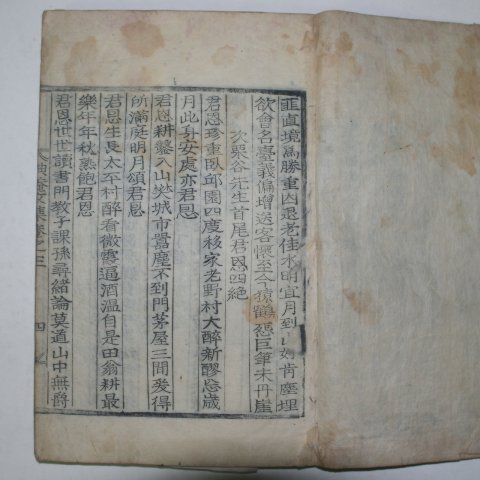 匪直境爲勝重因還老佳水明宜月到山如肯塵埋
欲會名臺義偏增送客懷至今猿鶴怨巨筆未丹崖
次栗谷先生首尾君恩四絶
君恩珍重臥邱園四度移家老野村大醉新醪忘歲
月此身安處亦君恩
君恩耕鑿入山城市囂塵不到門茅屋三間爰得
所滿庭明月頌君恩
君恩生長太平村醉看微霞逼酒溫自是田翁耕最
樂年年秋熟飽君恩
君恩世世讀書門敎子課孫尋緖論莫道山中無爵
四